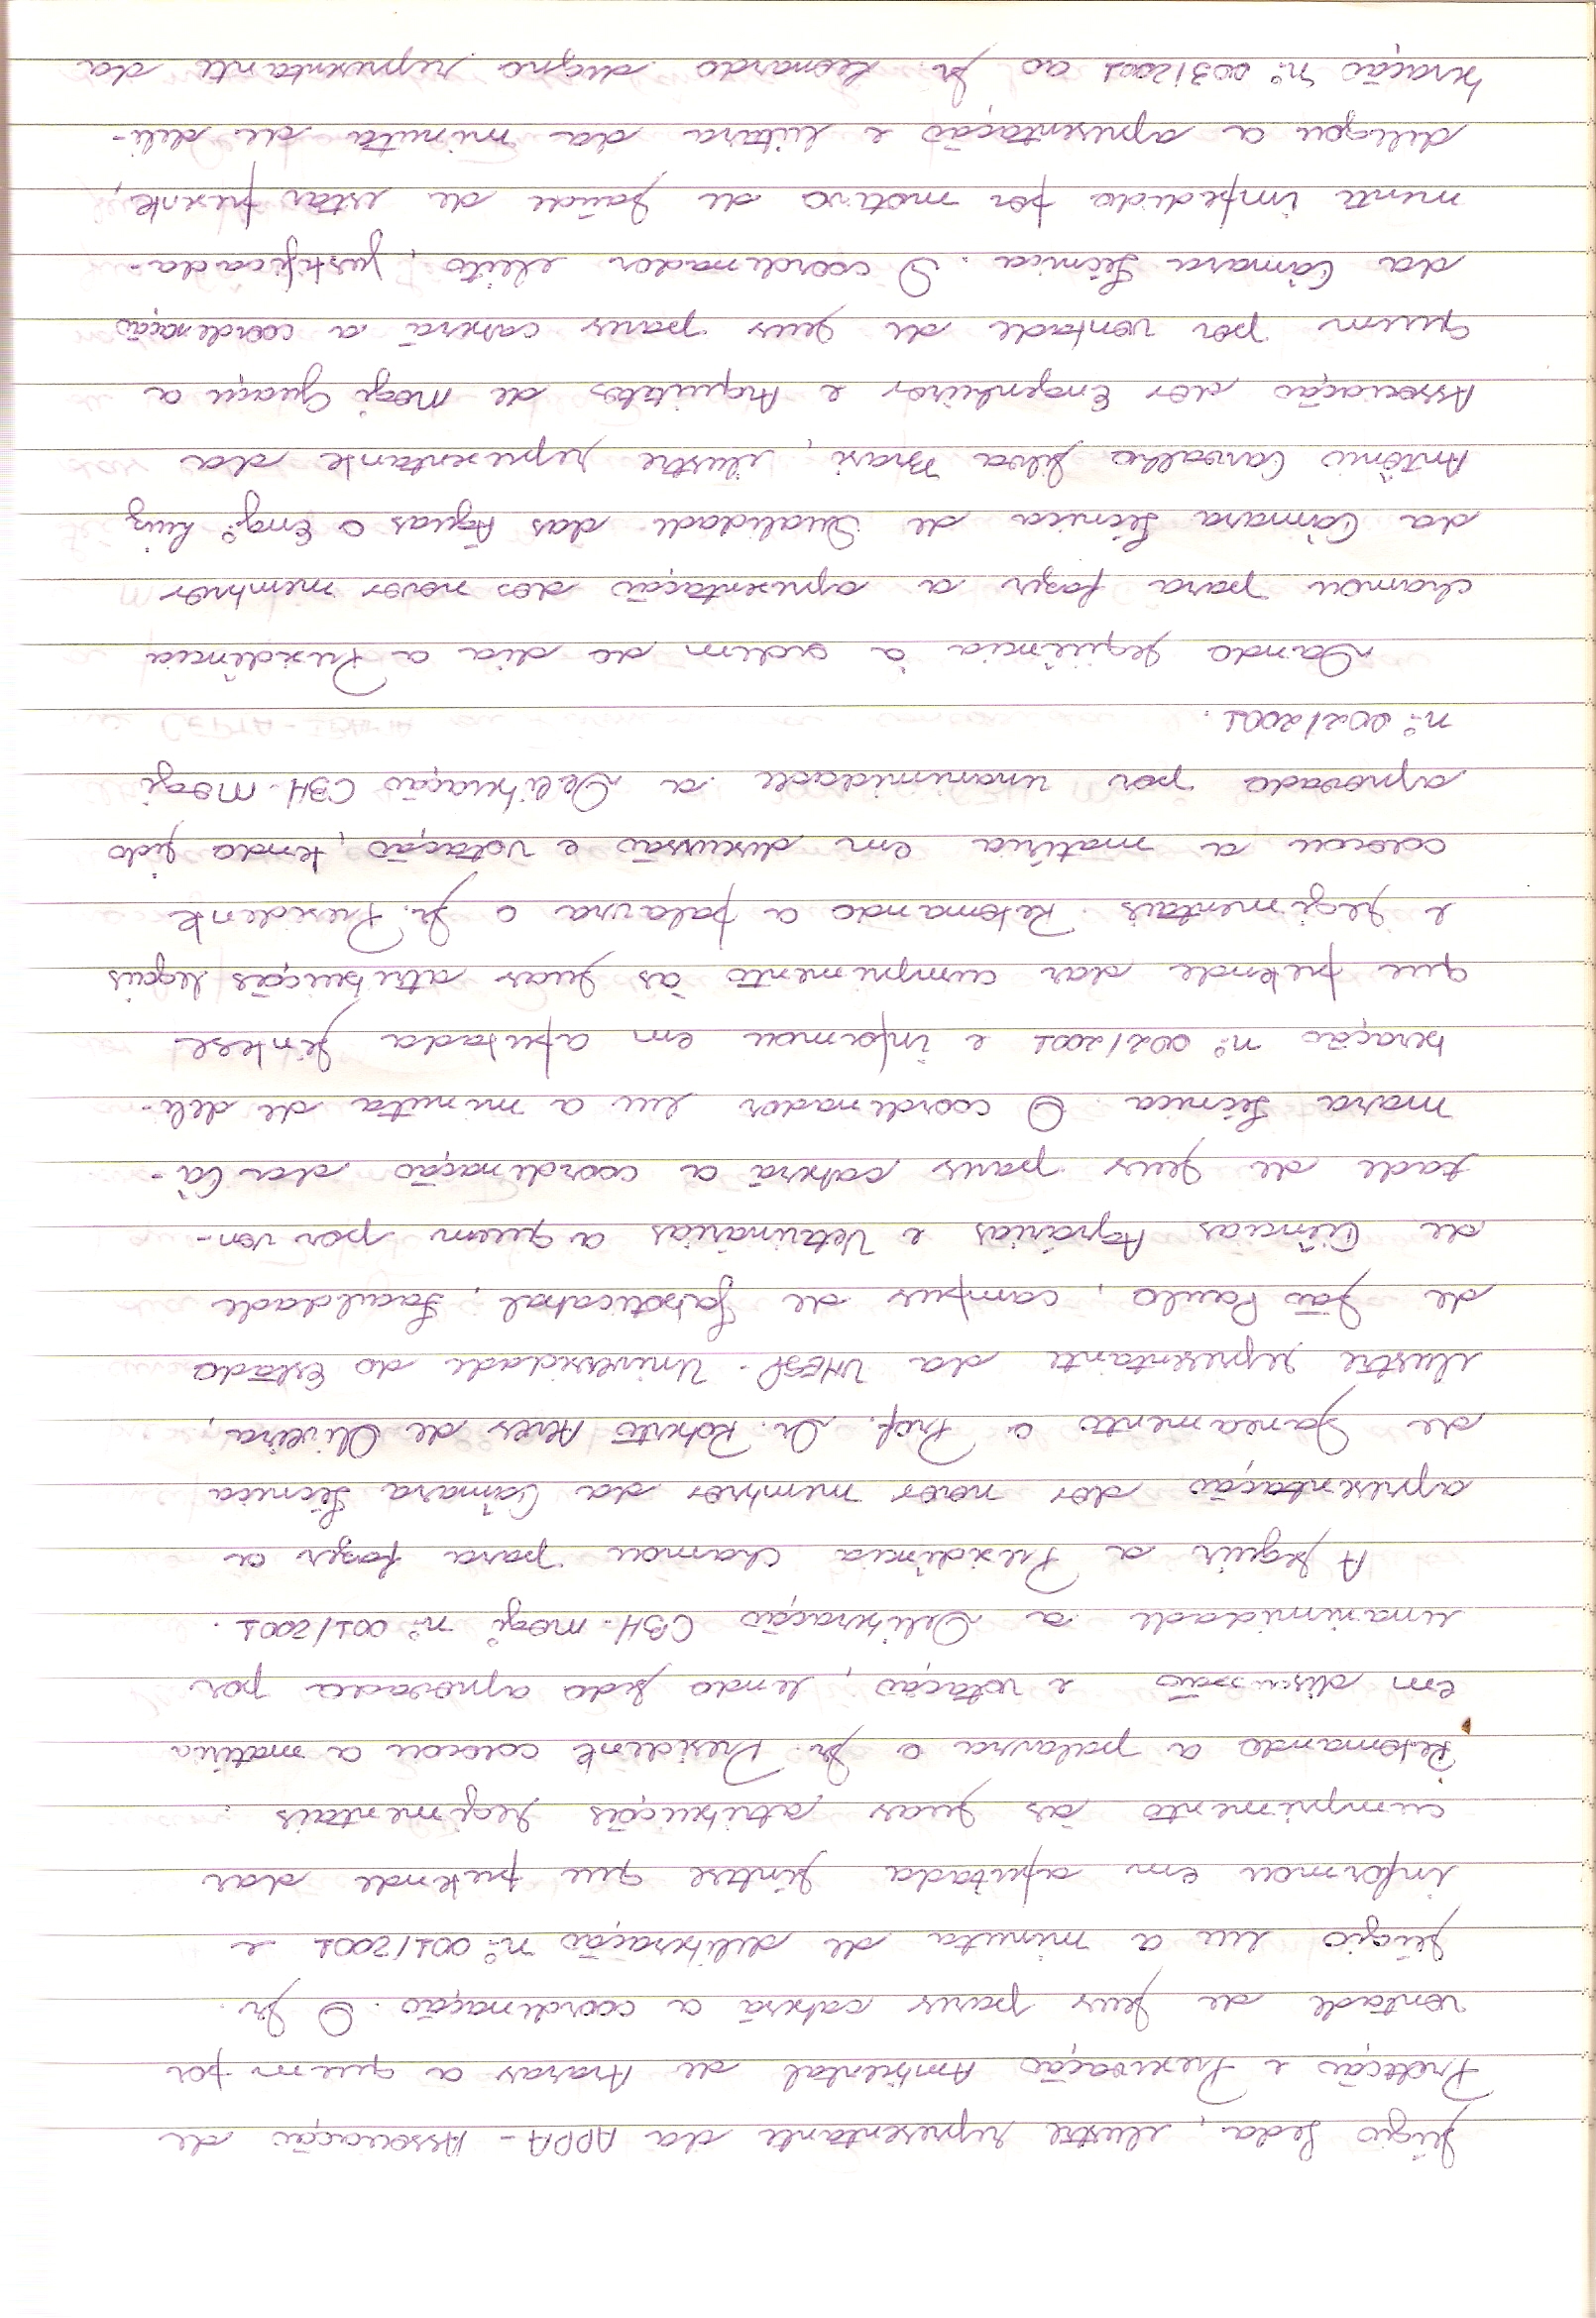 Sérgio Leda, ilustre representante da APPA - Associação de
Proteção e Preservação Ambiental de Araras a quem por
vontade de seus pares caberá a coordenação. O Sr.
Sérgio leu a minuta de deliberação nº 001/2001 e
informou em apertada síntese que pretende dar
cumprimento às suas atribuições regimentais.
Retomando a palavra o Sr. Presidente colocou a matéria
em discussão e votação, tendo sido aprovada por
unanimidade a Deliberação CBH-Mogi nº 001/2001.
A seguir a Presidência chamou para fazer a
apresentação dos novos membros da Câmara Técnica
de Saneamento o Prof. Dr. Roberto Alves de Oliveira,
ilustre representante da UNESP - Universidade do Estado
de São Paulo, campus de Jaboticabal, Faculdade
de Ciências Agrárias e Veterinárias a quem por von-
tade de seus pares caberá a coordenação da Câ-
mara Técnica. O coordenador leu a minuta de deli-
beração nº 002/2001 e informou em apertada síntese
que pretende dar cumprimento às suas atribuições legais
e regimentais. Retomando a palavra o Sr. Presidente
colocou a matéria em discussão e votação, tendo sido
aprovada por unanimidade a Deliberação CBH-Mogi
nº 002/2001.
Dando sequência à ordem do dia a Presidência
chamou para fazer a apresentação dos novos membros
da Câmara Técnica de Qualidade das Águas o Engº Luiz
Antônio Carvalho Silva Brasi, ilustre representante da
Associação dos Engenheiros e Arquitetos de Mogi Guaçu a
quem por vontade de seus pares caberá a coordenação
da Câmara Técnica. O coordenador eleito, justificada-
mente impedido por motivo de saúde de estar presente,
delegou a apresentação e leitura da minuta de deli-
beração nº 003/2001 ao Sr. Leonardo digno representante da